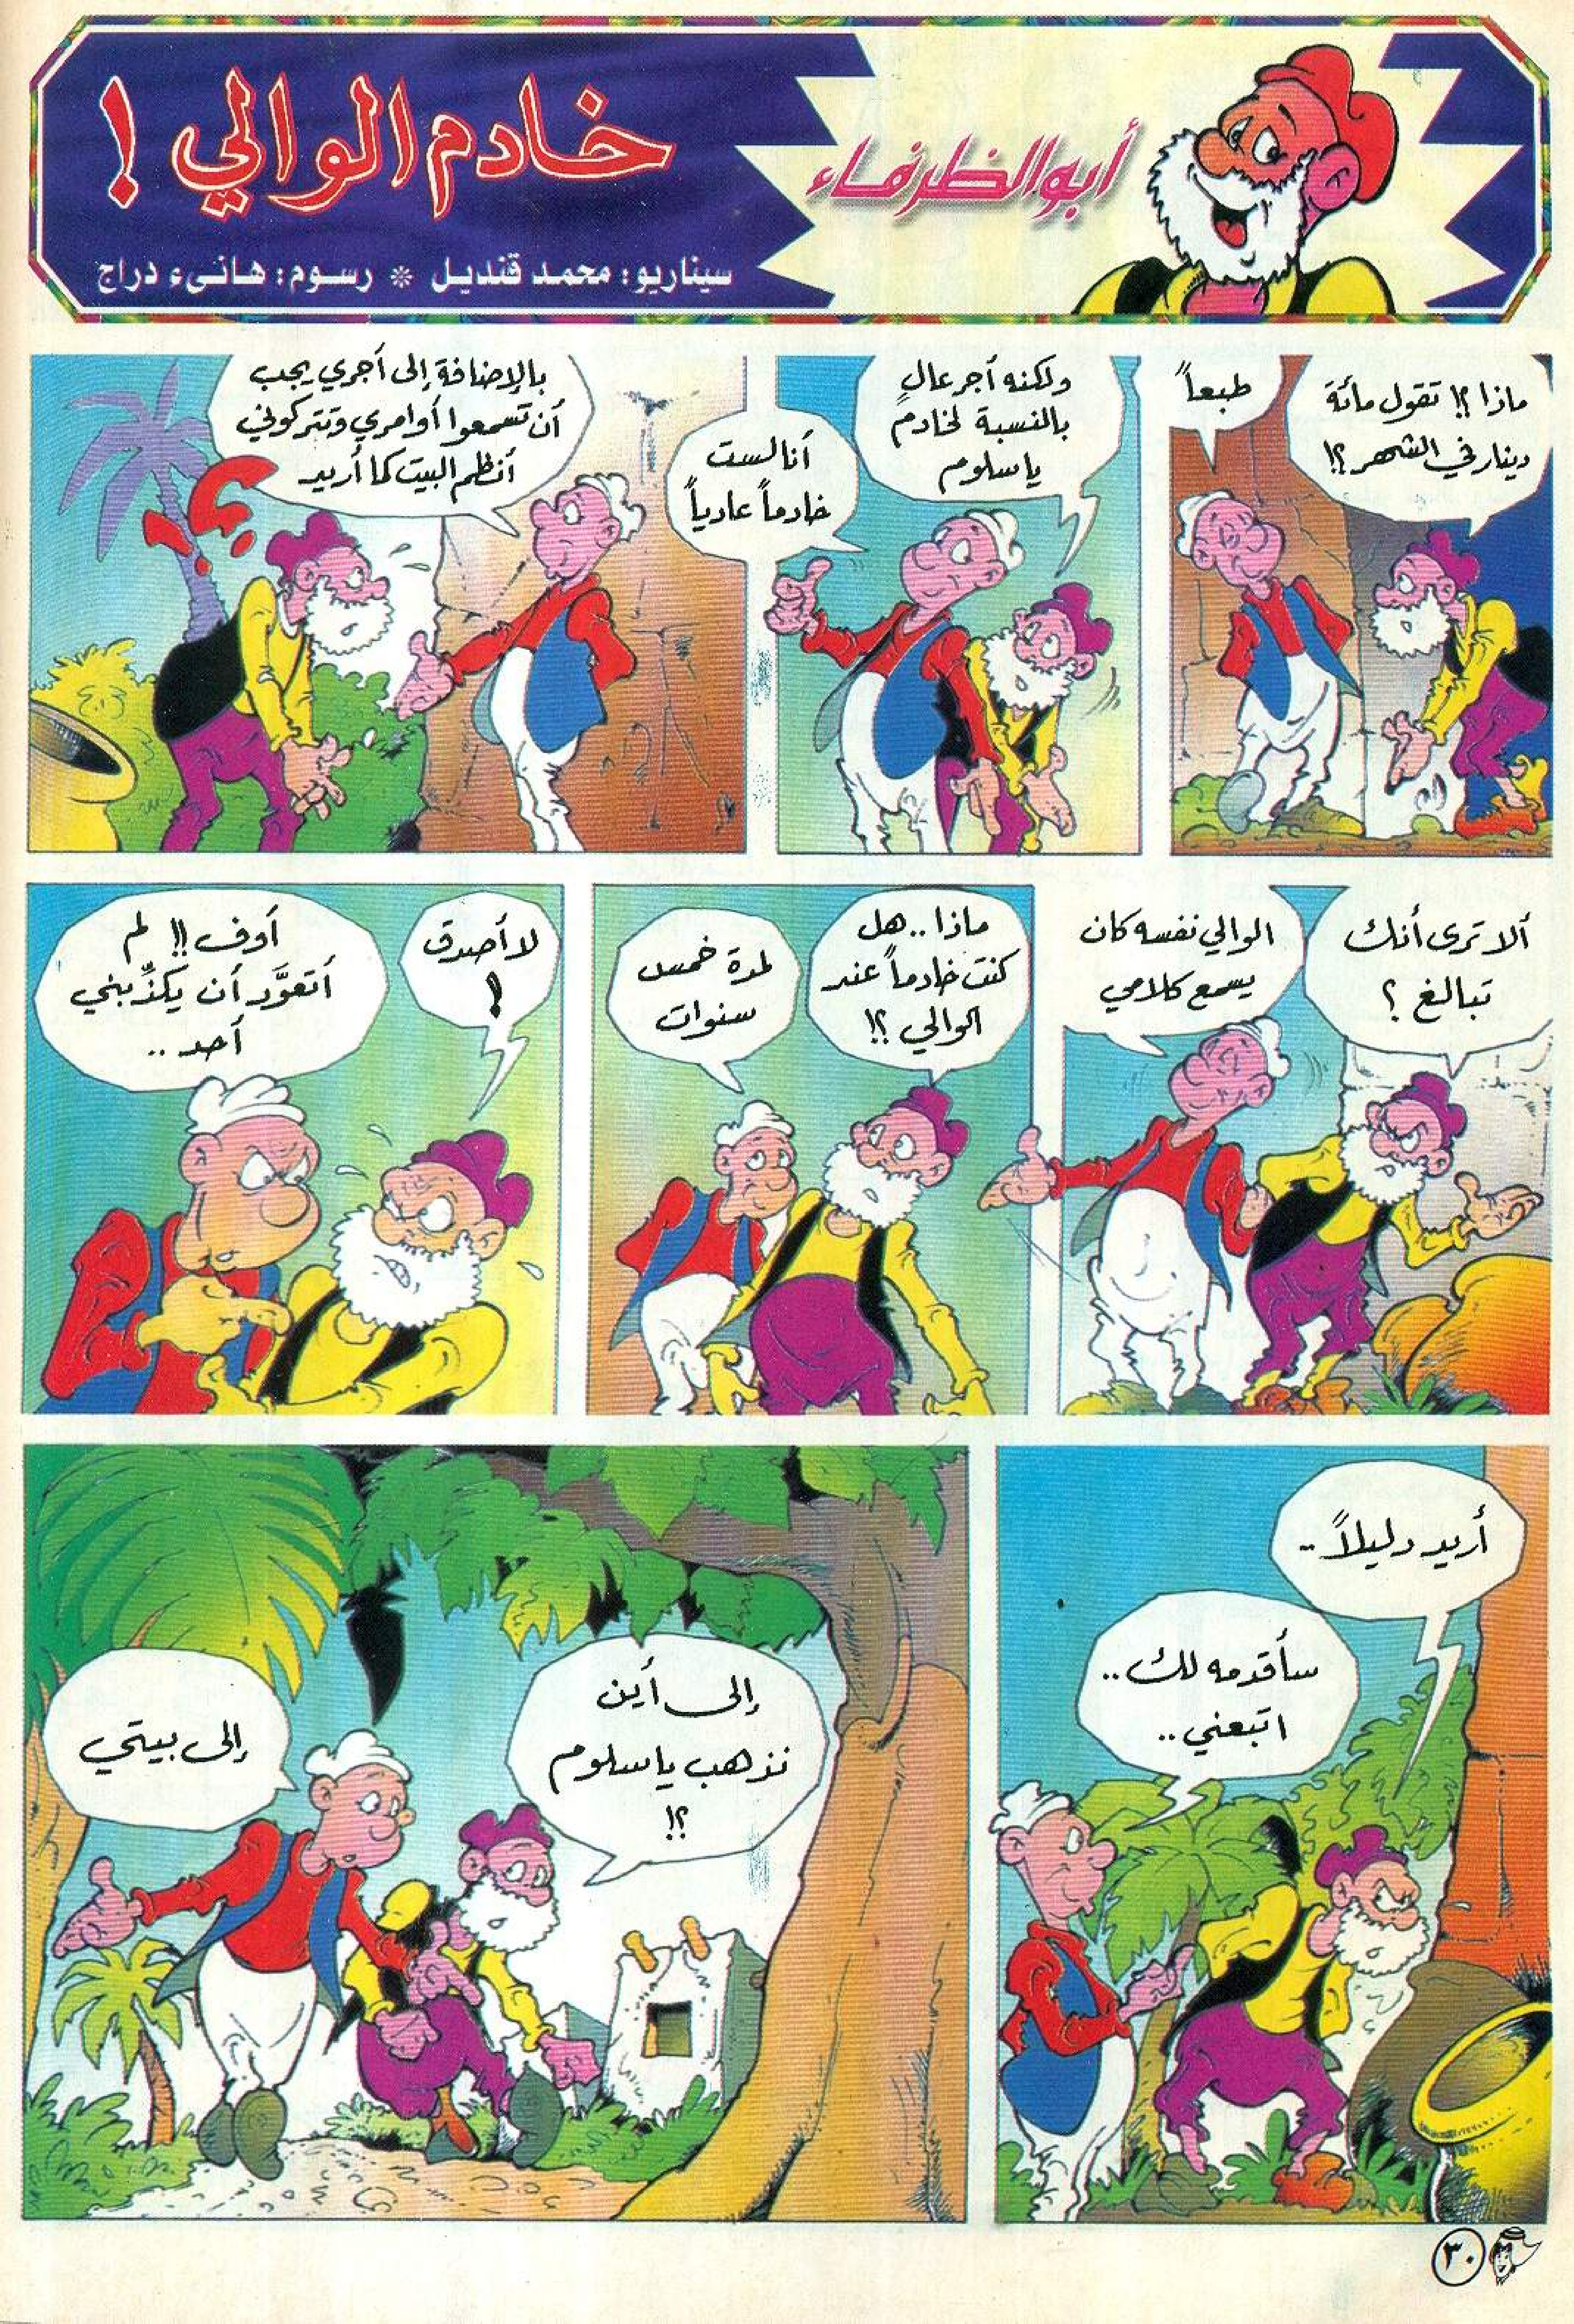 أبو الظرفاء
خادم الوالي !
سيناريو: محمد قنديل * رسوم: هانىء دراج
ماذا ؟! تقول مائة
دينار في الشهر ؟!
طبعاً
ولكنه أجر عالٍ
بالنسبة لخادم
يا سلوم
أنا لست
خادماً عادياً
بالإضافة إلى أجري يجب
أن تسمعوا أوامري وتتركوني
أنظم البيت كما أريد
؟!
ألا ترى أنك
تبالغ ؟
الوالي نفسه كان
يسمع كلامي
ماذا .. هل
كنت خادماً عند
الوالي ؟!
لمدة خمس
سنوات
لا أصدق
!
أوف !! لم
أتعوَّد أن يكذِّبني
أحد ..
أريد دليلاً ..
سأقدمه لك ..
اتبعني ..
إلى أين
نذهب يا سلوم
؟!
إلى بيتي
٣٠